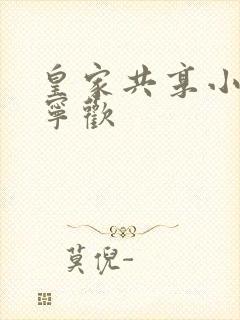 皇家共享小
寧歡
莫倪-